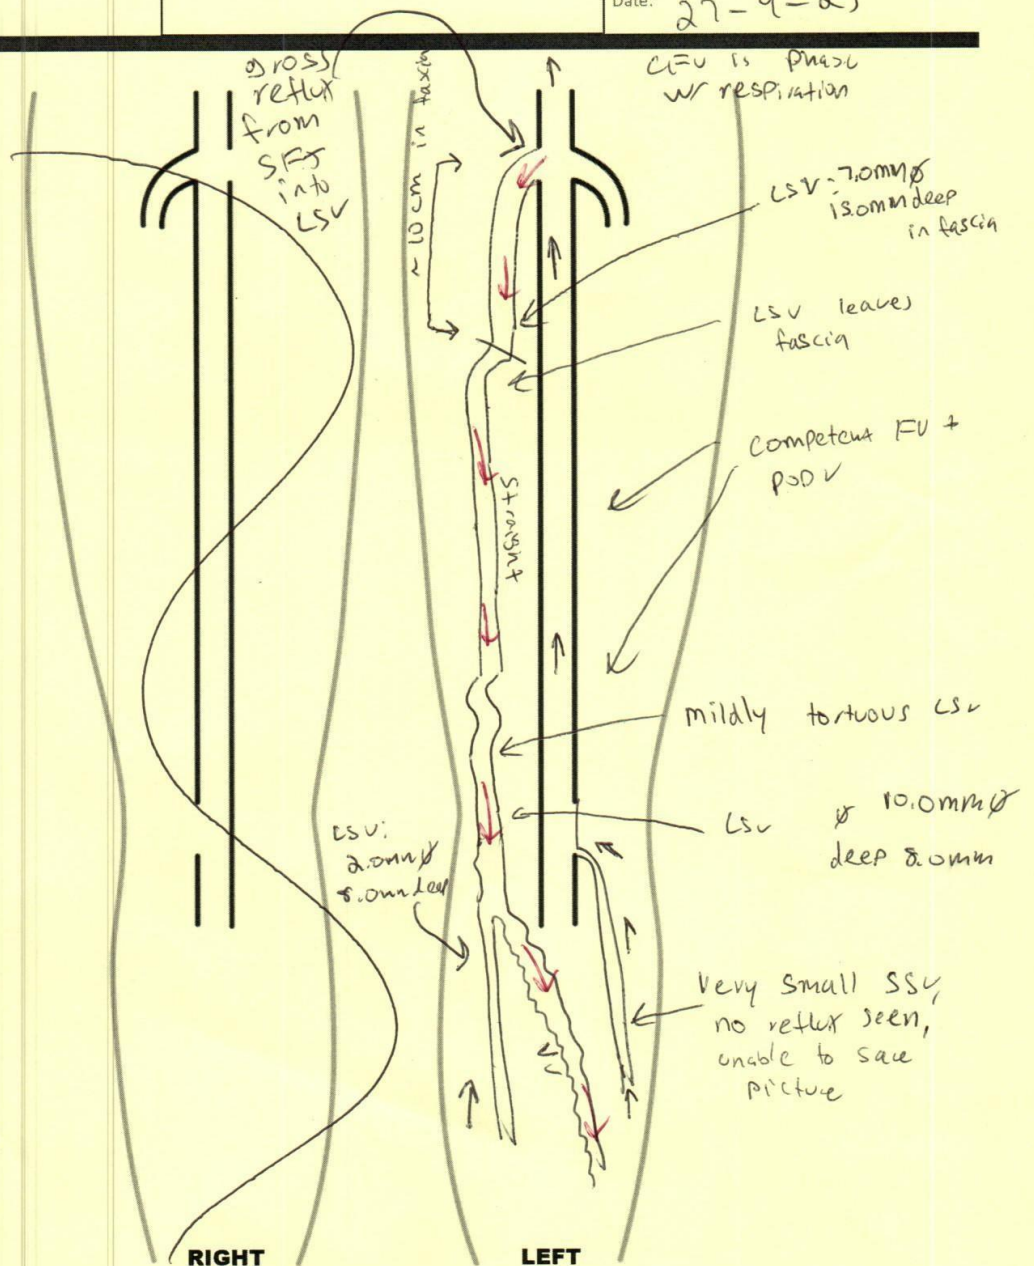 Date: 27-9-23
gross
reflux
from
SFJ
into
LSV
~10cm in fascia
CFV is phasic
w/ respiration
LSV: 7.0mmø
15.0mm deep
in fascia
LSV leaves
fascia
Competent FV +
POPV
Straight
mildly tortuous LSV
LSV ø 10.0mmø
deep 8.0mm
LSV:
2.0mmø
8.0mm deep
VV
Very small SSV,
no reflux seen,
unable to save
picture
RIGHT LEFT